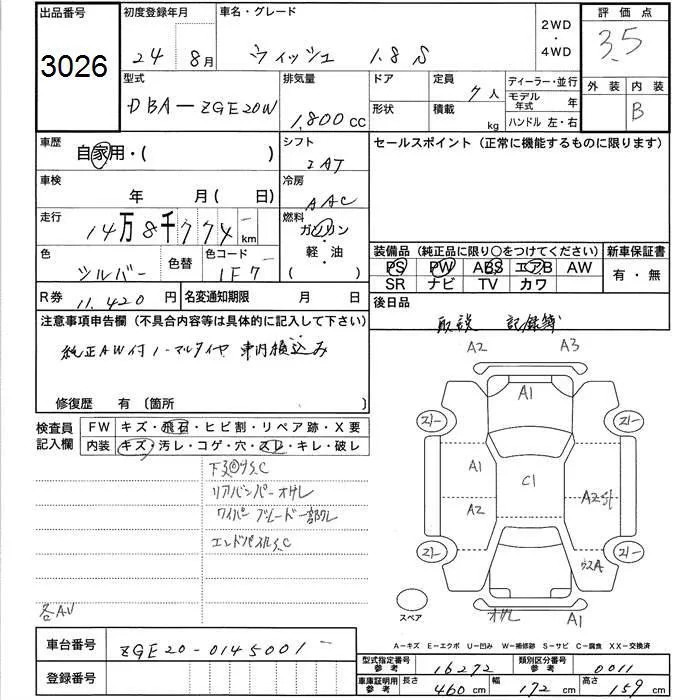 出品番号 初度登録年月 車名・グレード 2WD・4WD 評価点
3026 24年 8月 ウィッシュ 1.8S 3.5
型式 排気量 ドア 定員 ディーラー・並行 外装 内装
DBA-ZGE20W 1,800cc 形状 積載 7人 kg モデル年式 年 B
ハンドル 左・右
車歴 自家用・( ) シフト セールスポイント(正常に機能するものに限ります)
2AT
車検 年 月( 日) 冷房
AAC
走行 14万8千774km 燃料 ガソリン・軽・油( )
色 シルバー 色替 色コード 1F7
装備品(純正品に限り○をつけてください) 新車保証書
PS PW ABS エアB AW 有・無
SR ナビ TV カワ
R券 11,420円 名変通知期限 月 日 後日品
取説 記録簿
注意事項申告欄(不具合内容等は具体的に記入して下さい)
純正AW付ノーマルタイヤ 車内積込み
修復歴 有 〔箇所 〕
検査員記入欄 FW キズ・飛石・ヒビ割・リペア跡・X要
内装 キズ・汚レ・コゲ・穴・スレ・キレ・破レ
リアバンパーオサレ
ワイパーブレード一部クレ
各AU
A2 A3
A1
A1 C1
A2
A1
スペア
A-キズ E-エクボ U-凹み W-補修跡 S-サビ C-腐食 XX-交換済
車台番号 ZGE20-0145001
登録番号
型式指定番号参考 16272 類別区分番号参考 0011
車庫証明用参考 長さ 460cm 幅 172cm 高さ 159cm